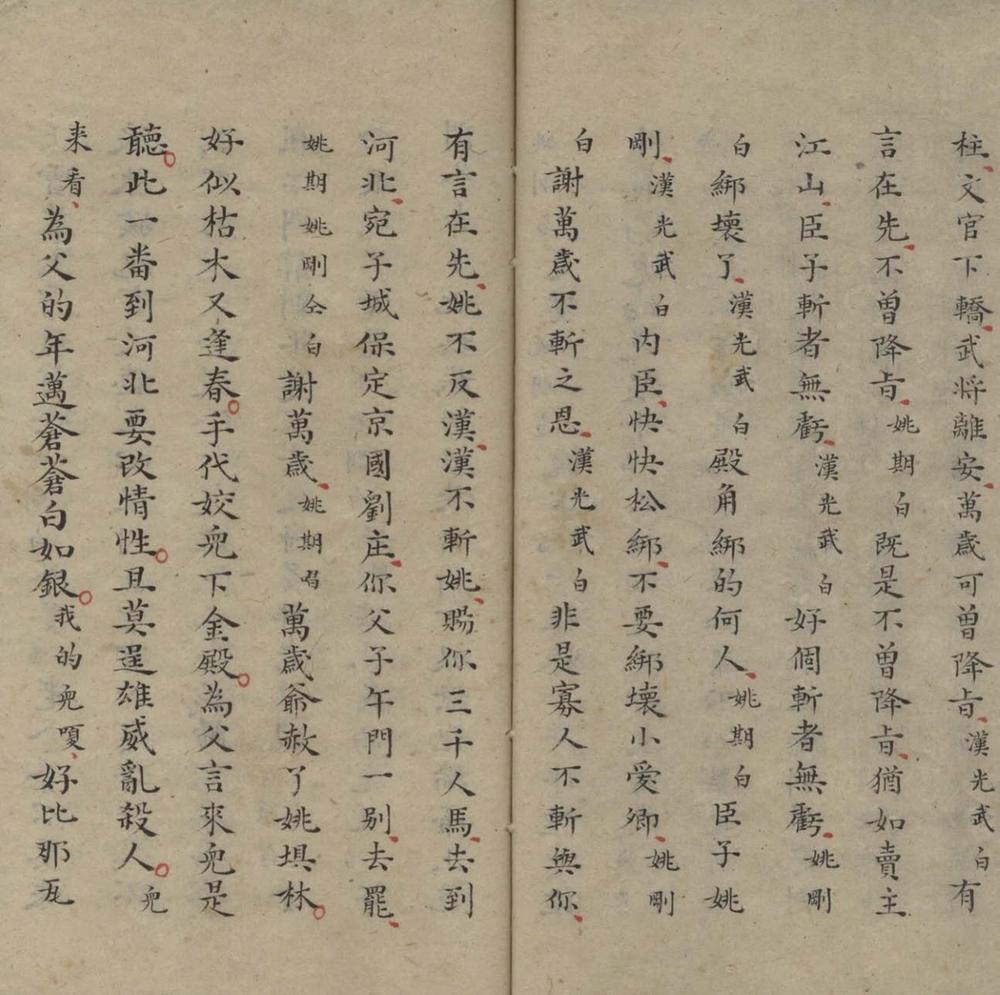 柱、文官下轎、武将離安、萬歲可曾降㫖、漢光武白有
言在先、不曾降㫖、姚期白既是不曾降㫖、猶如賣主
江山、臣子斬者無虧、漢光武白好個斬者無虧、姚剛
白綁壞了、漢光武白殿角綁的何人、姚期白臣子姚
剛、漢光武白内臣、快快松綁、不要綁壞小愛卿、姚剛
白謝萬歲不斬之恩、漢光武白非是寡人不斬與你、
有言在先、姚不反漢、漢不斬姚、賜你三千人馬、去到
河北、宛子城保定京國劉庄、你父子午門一别、去罷、
姚期姚剛仝白謝萬歲、姚期唱萬歲爺赦了姚埧林。
好似枯木又逢春。手代姣兜下金殿。為父言來兜是
聽。此一畨到河北要改情性。且莫逞雄威亂殺人。兜
来看、為父的年邁蒼蒼白如銀。我的兜嗄、好比那瓦